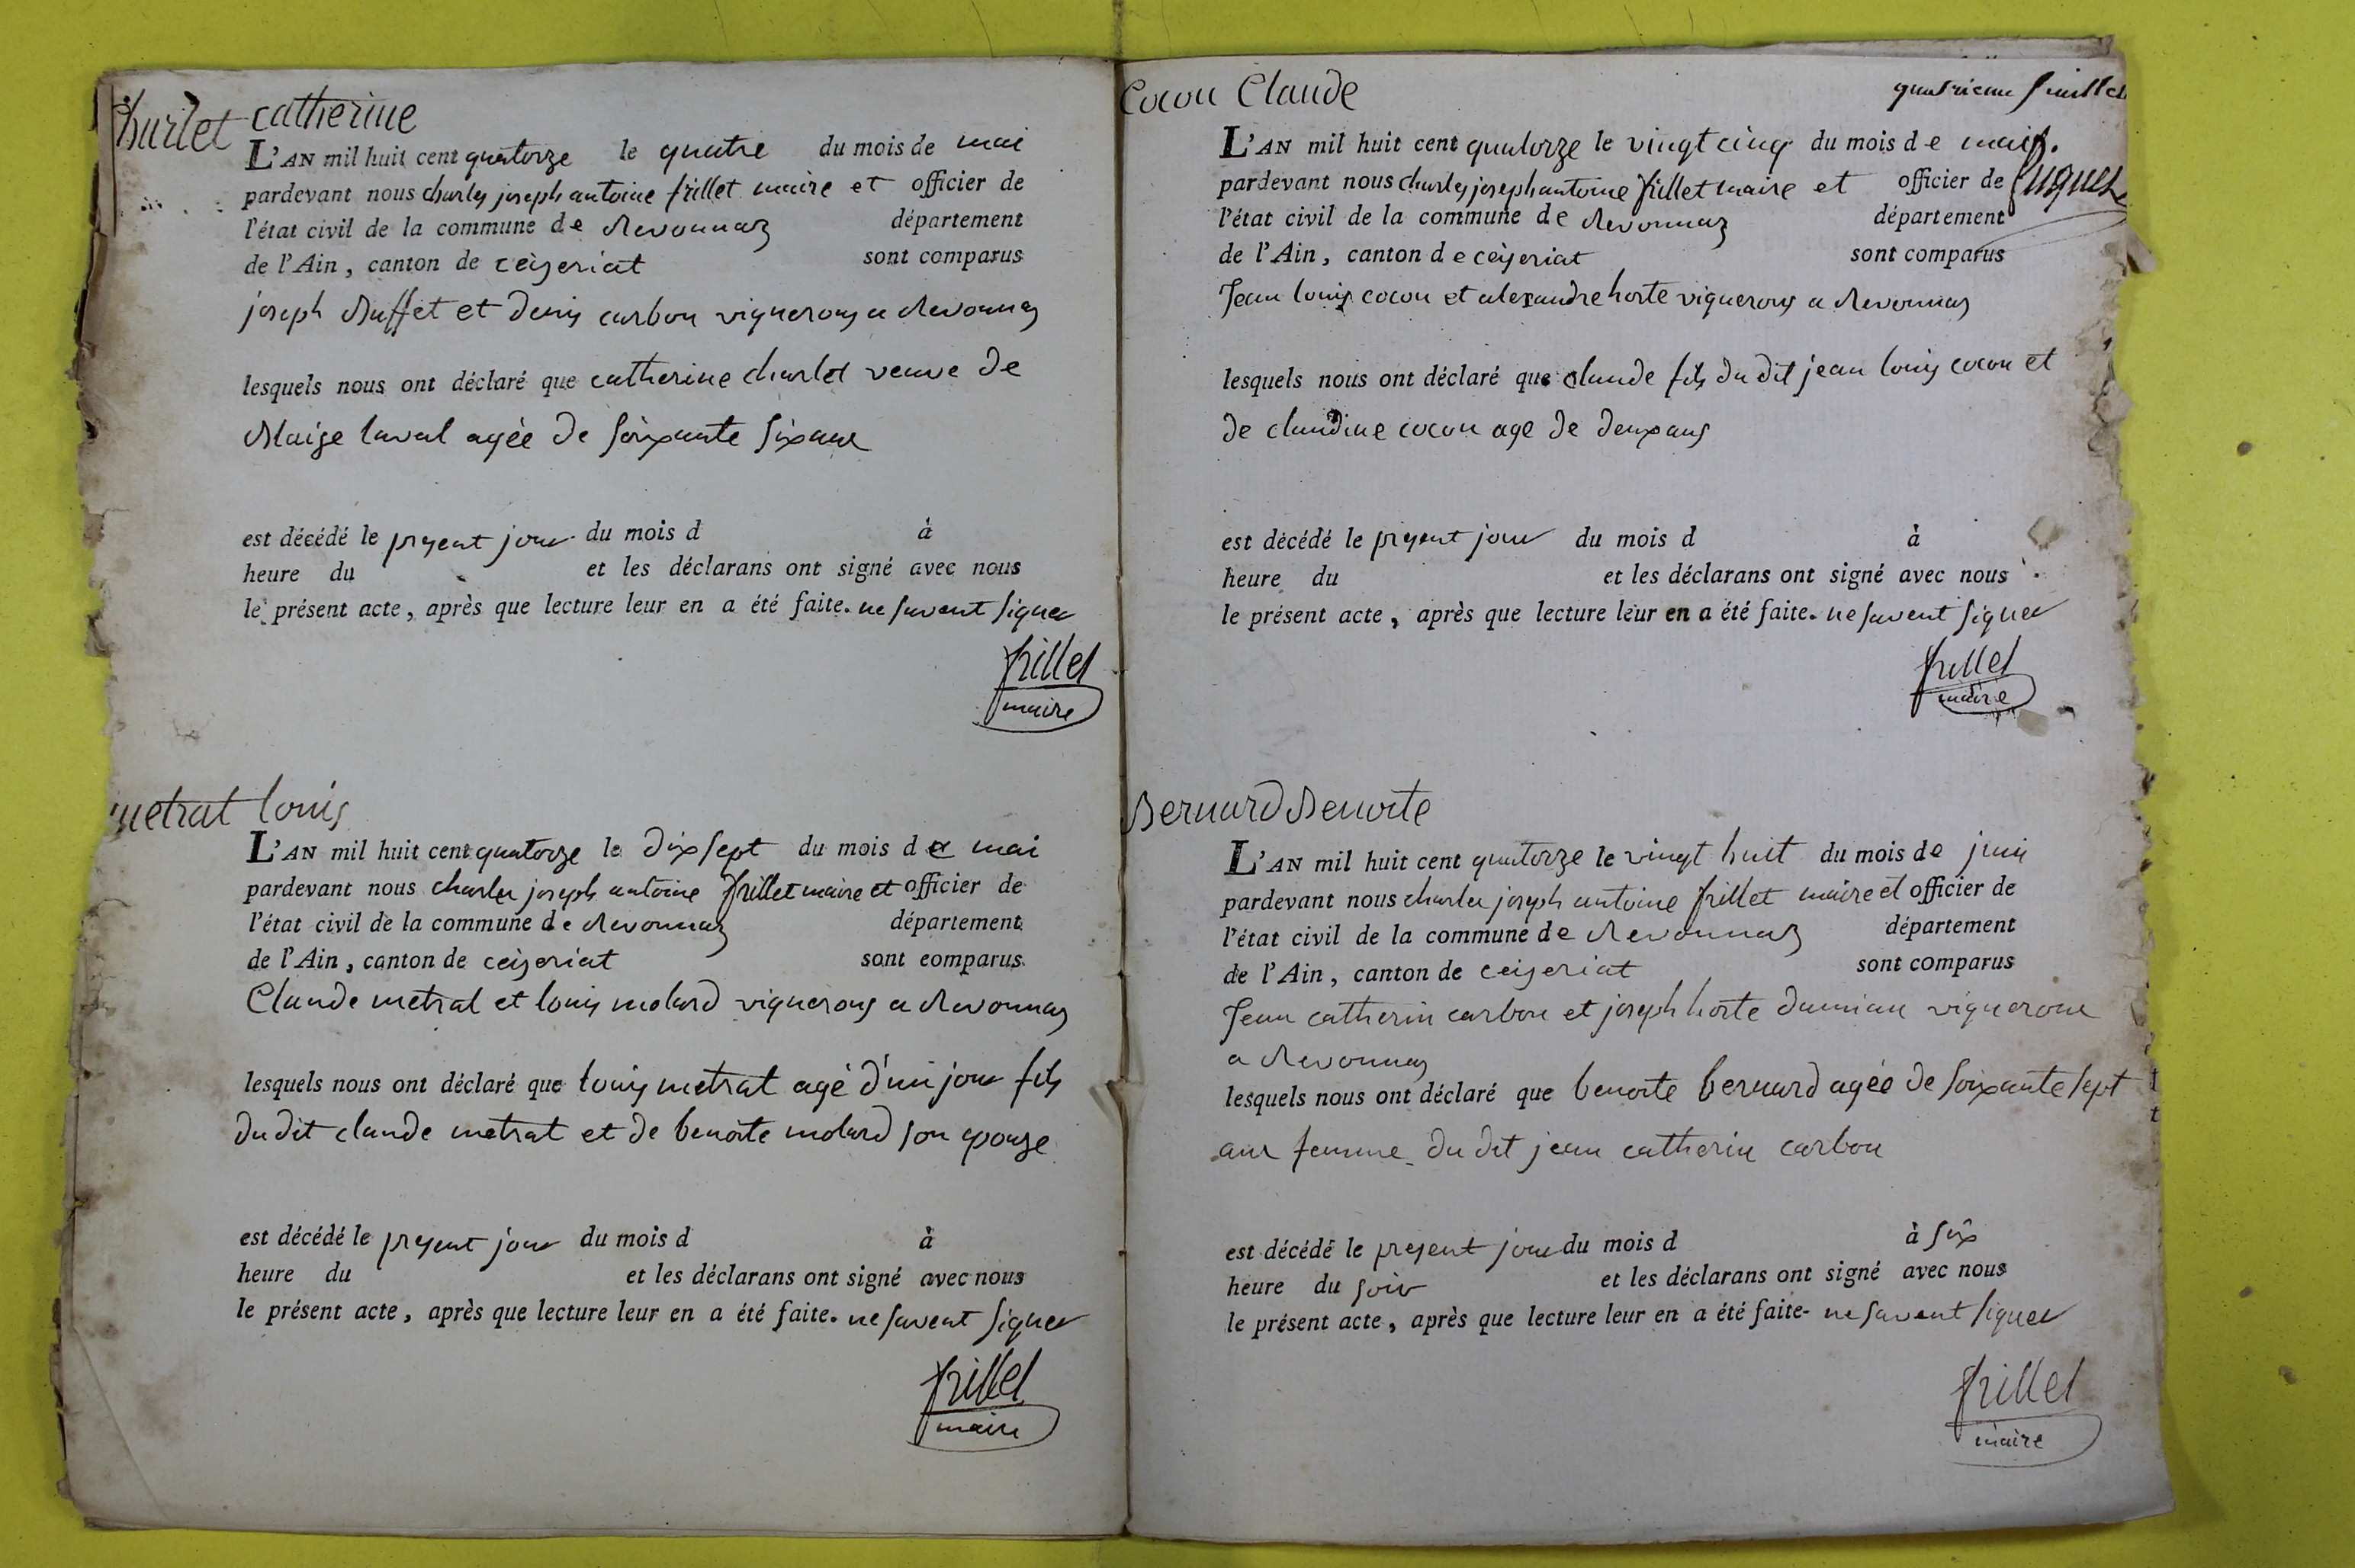 Charlet catherine
L'AN mil huit cent quatorze le quatre du mois de mai
pardevant nous charles joseph antoine frillet maire et officier de
l'état civil de la commune de Revonnaz département
de l'Ain, canton de ceiseriat sont comparus
joseph Buffet et denis carbon vignerons a Revonnas
lesquels nous ont déclaré que catherine charlet veuve de
Blaise laval agée de soixante six ans
est décédé le present jour du mois d à
heure du et les déclarans ont signé avec nous
le présent acte, après que lecture leur en a été faite. ne savent signer
frillet
maire
metrat louis
L'AN mil huit cent quatorze le dix sept du mois de mai
pardevant nous charles joseph antoine frillet maire et officier de
l'état civil de la commune de Revonnaz département
de l'Ain, canton de ceiseriat sont comparus
Claude metrat et louis molard vignerons a Revonnas
lesquels nous ont déclaré que louis metrat agé d'un jour fils
du dit claude metrat et de benoite molard son epouse
est décédé le present jour du mois d à
heure du et les déclarans ont signé avec nous
le présent acte, après que lecture leur en a été faite. ne savent signer
frillet
maire
quatrieme feuillet
Cocon Claude
L'AN mil huit cent quatorze le vingt cinq du mois de mai
pardevant nous charles joseph antoine frillet maire et officier de
l'état civil de la commune de Revonnaz département
de l'Ain, canton de ceiseriat sont comparus
Jean louis cocon et alexandre horte vignerons a Revonnas
lesquels nous ont déclaré que claude fils du dit jean louis cocon et
de claudine cocon age de deux ans
est décédé le present jour du mois d à
heure du et les déclarans ont signé avec nous
le présent acte, après que lecture leur en a été faite. ne savent signer
frillet
maire
Bernard Benoite
L'AN mil huit cent quatorze le vingt huit du mois de juin
pardevant nous charles joseph antoine frillet maire et officier de
l'état civil de la commune de Revonnaz département
de l'Ain, canton de ceiseriat sont comparus
Jean catherin carbon et joseph horte damian vignerons
a Revonnas
lesquels nous ont déclaré que benoite bernard agée de soixante sept
ans femme du dit jean catherin carbon
est décédé le present jour du mois d à six
heure du soir et les déclarans ont signé avec nous
le présent acte, après que lecture leur en a été faite. ne savent signer
frillet
maire